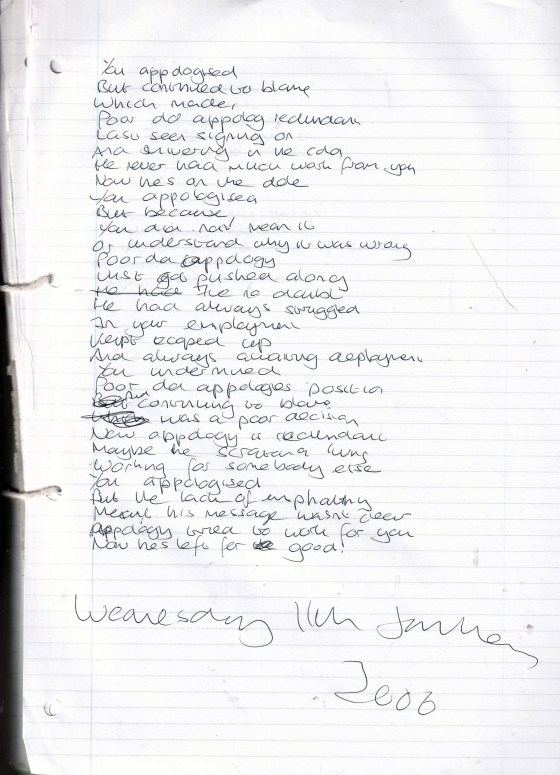 You appologised
But continued to blame
Which made,
Poor old appology redundant
Last seen signing on
And shivering in the cold
He never had much work from you
Now hes on the dole
You appologised
But because,
You did not mean it
Or understand why it was wrong
Poor old appology
Just got pushed along
He had always struggled
In your employment
Kept cooped up
And always awaiting deployment
You undermined
Poor old appologies position
continuing to blame
was a poor decision
Now appology is redundant
Maybe he living
Working for somebody else
You appologised
But the lack of emphathy
Meant his message wasnt clear
Appology tried to work for you
Now hes left for good!
Wednesday 11th January
2006